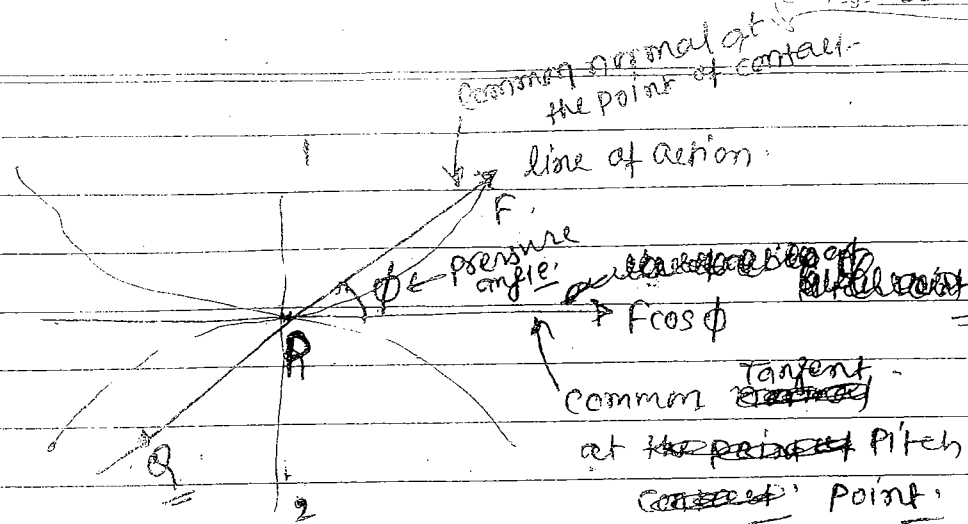 common normal at
the point of contact.
1
line of action.
F.
pressure
angle.
ϕ
F cos ϕ
P
common Tangent
at Pitch
Point.
Q
2